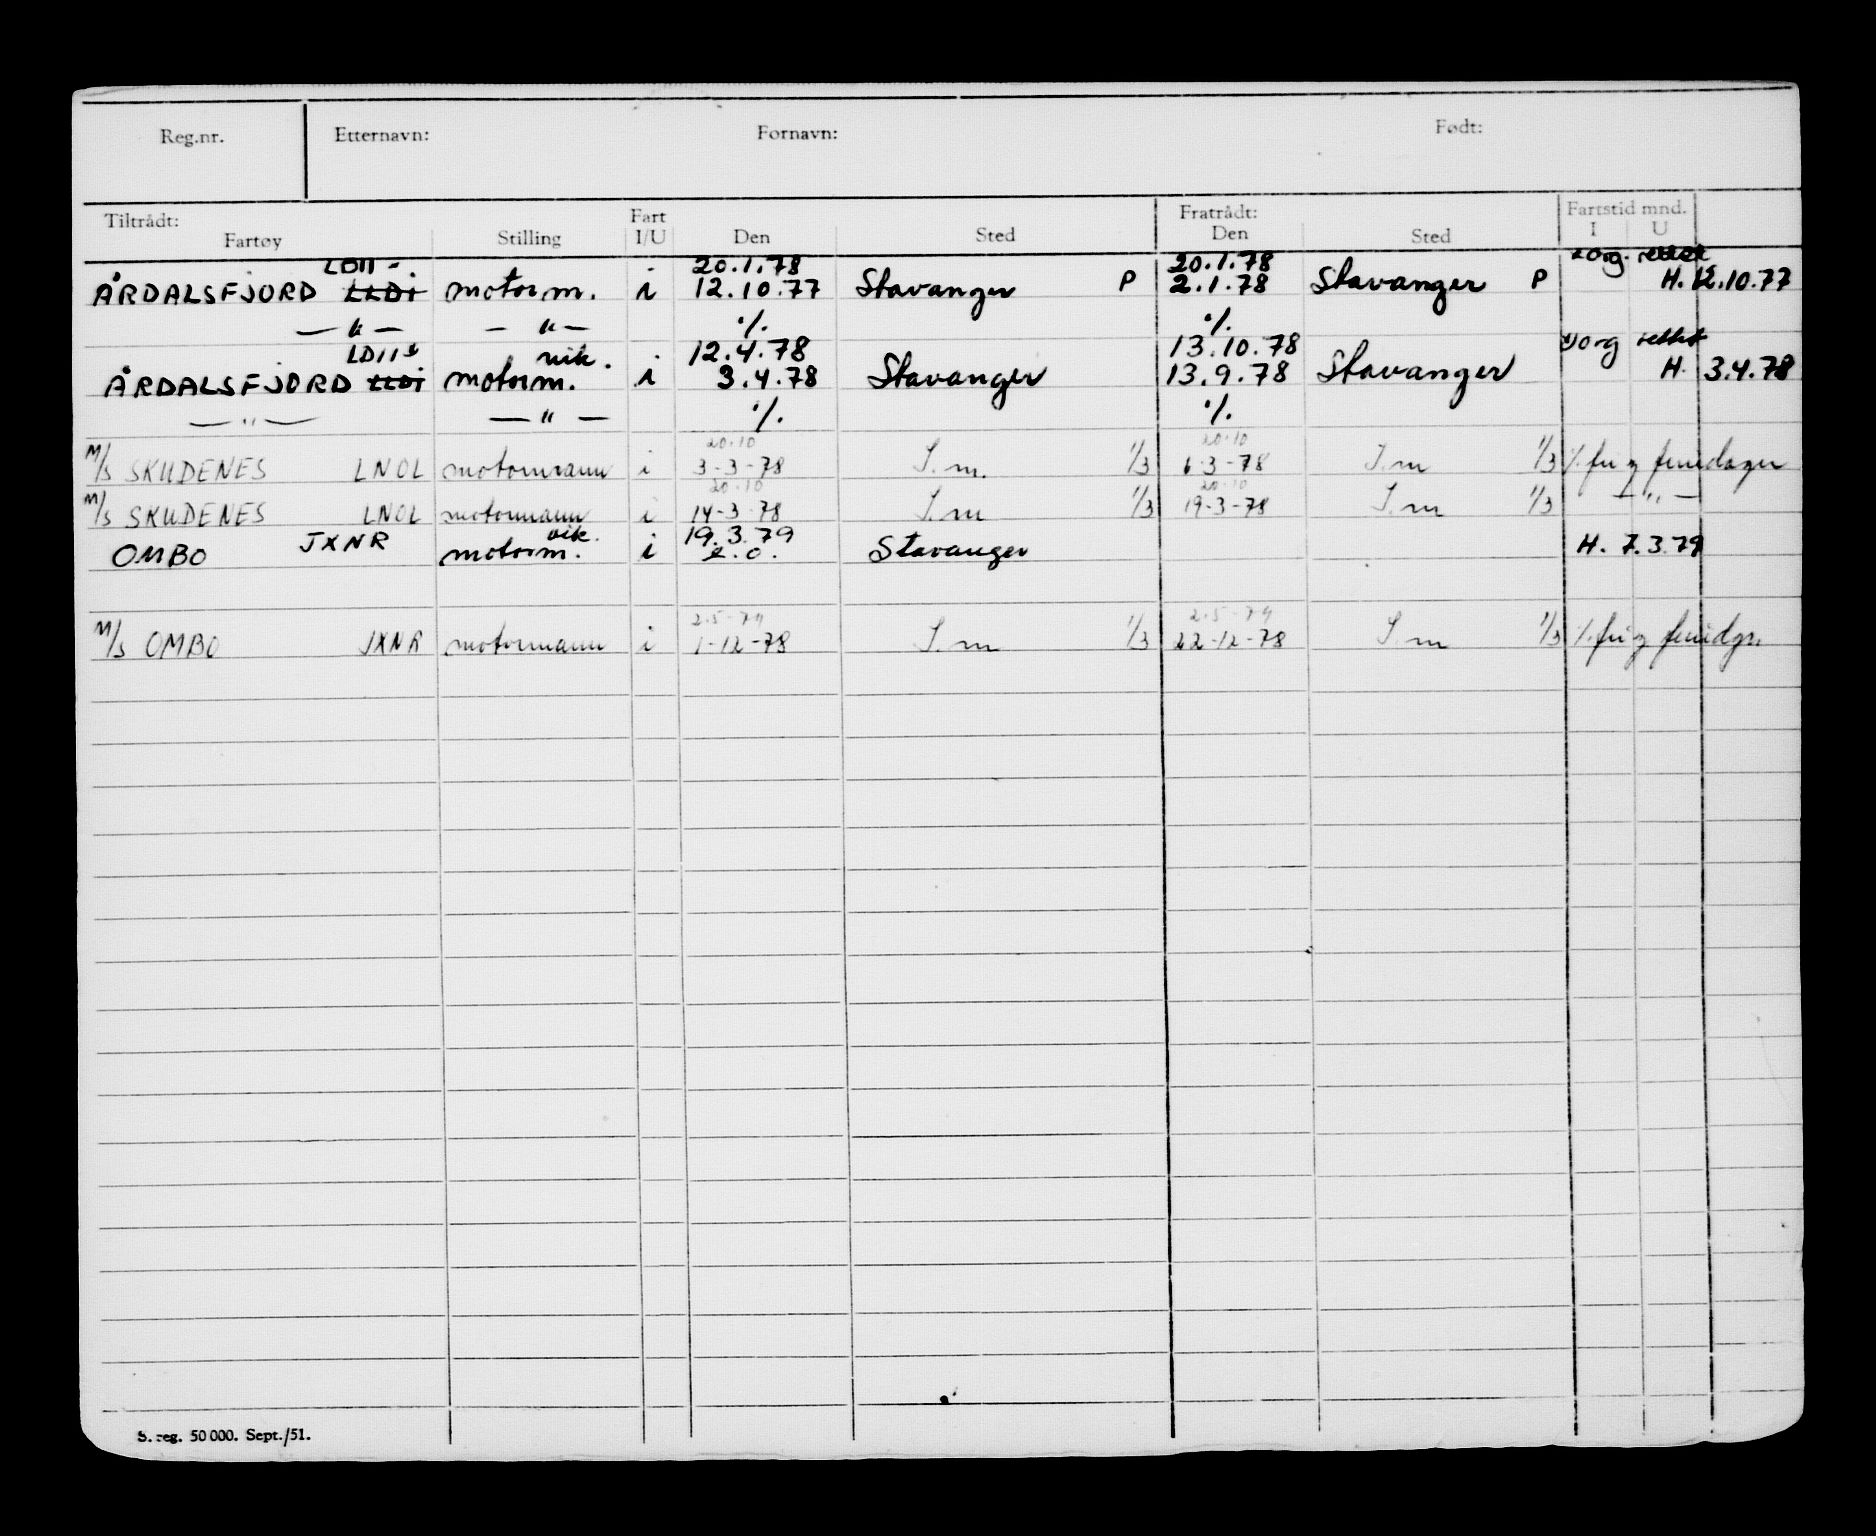 Reg.nr. Etternavn: Fornavn: Født:
Tiltrådt: Fart Fratrådt: Fartstid mnd.
Fartøy Stilling I/U Den Sted Den Sted I U
LDII 20.1.78 20.1.78
ÅRDALSFJORD motorm. i 12.10.77 Stavanger P 2.1.78 Stavanger P H. 12.10.77
— " — — " — ·/. ·/.
LDII vik. 12.4.78 13.10.78
ÅRDALSFJORD motorm. i 3.4.78 Stavanger 13.9.78 Stavanger H. 3.4.78
— " — — " — ·/. ·/.
20.10 20.10
M/S SKUDENES LNOL motormann i 3-3-78 S.m. 1/3 6-3-78 S.m 1/3 ·/. fri
20.10 20.10
M/S SKUDENES LNOL motormann i 14-3-78 S.m 1/3 19-3-78 S.m 1/3 — " —
vik. 19.3.79
OMBO JXNR motorm. i Stavanger H. 7.3.79
2.5-79 2.5-79
M/S OMBO JXNR motormann i 1-12-78 S.m 1/3 22-12-78 S.m 1/3 ·/. fri
S. reg. 50 000. Sept./51.